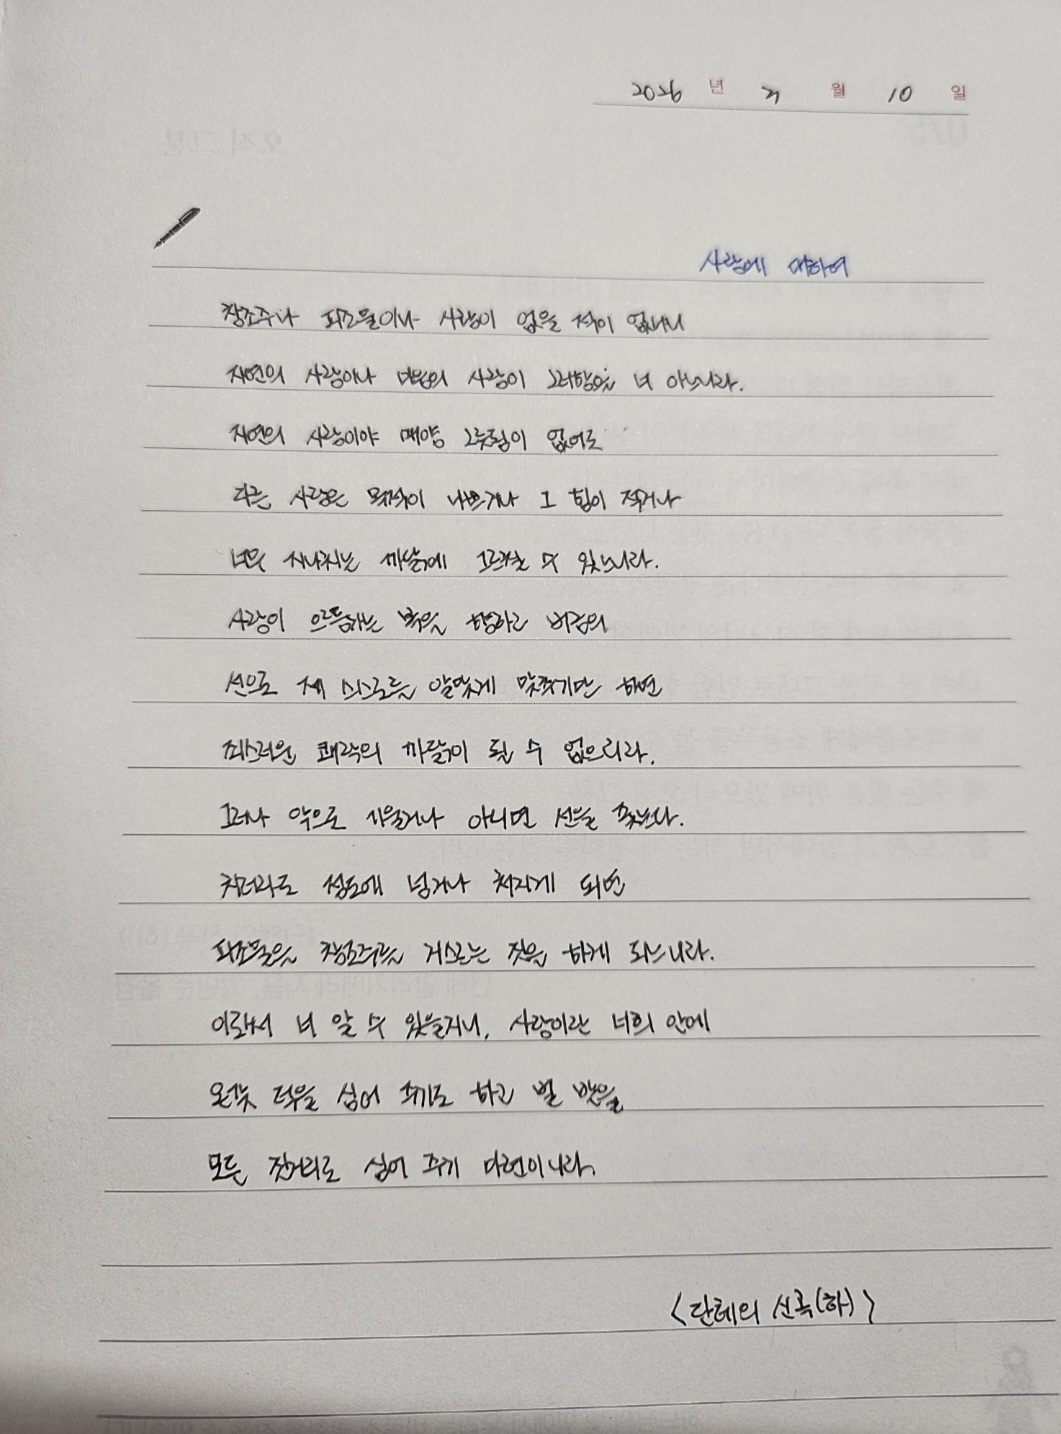 2026 년 3 월 10 일
사랑에 대하여
창조주나 피조물이나 사랑이 없을 적이 없나니
자연의 사랑이나 마음의 사랑이 그러함을 너 아느니라.
자연의 사랑이야 매양 그릇됨이 없어도
다른 사랑은 목적이 나쁘거나 그 힘이 적거나
너무 지나치는 까닭에 그르칠 수 있느니라.
사랑이 으뜸하는 복을 향하고 버금의
선으로 제 스스로를 알맞게 맞추기만 하면
죄스러운 쾌락의 까닭이 될 수 없으리라.
그러나 악으로 기울거나 아니면 선을 쫓는다.
치더라도 정도에 넘거나 처지게 되면
피조물은 창조주를 거스르는 짓을 하게 되느니라.
이로써 너 알 수 있을거니, 사랑이란 너희 안에
온갖 덕을 심어 주기도 하고 벌 받을
모든 짓거리도 심어 주기 마련이니라.
<단테의 신곡(하)>